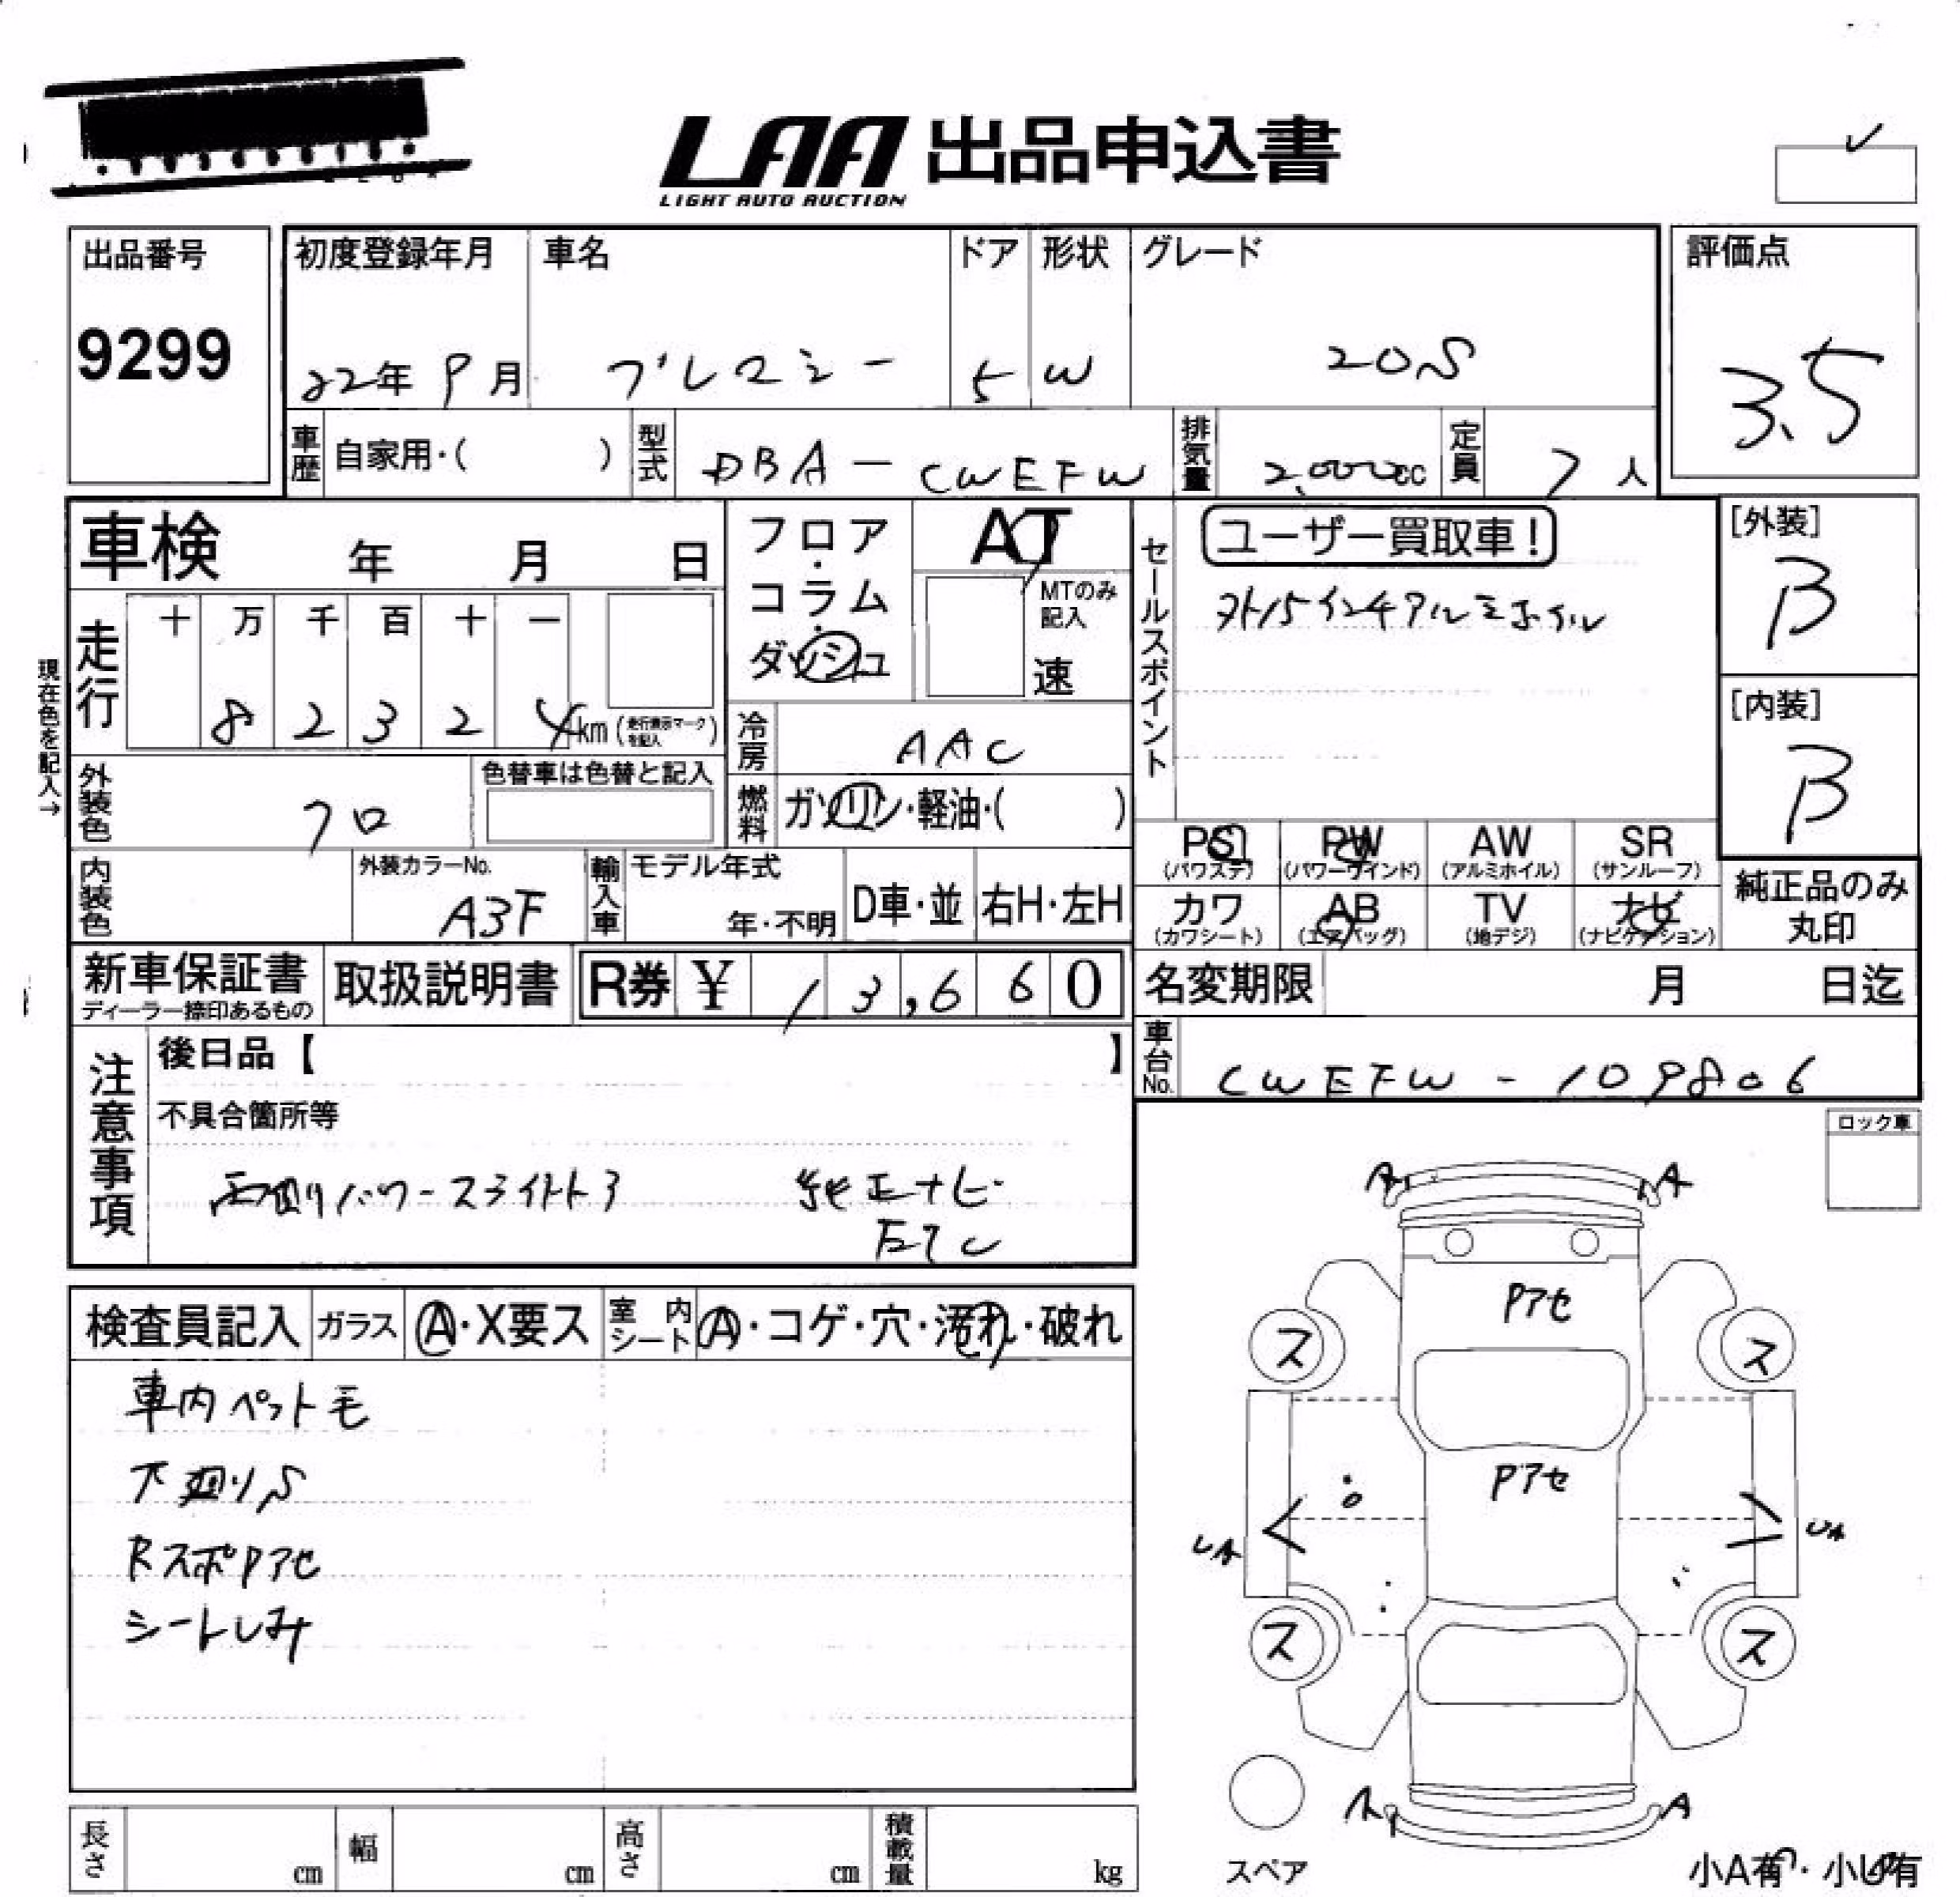 LAA 出品申込書
LIGHT AUTO AUCTION
出品番号
9299
初度登録年月
22年 9月
車名
プレマシー
ドア
5
形状
W
グレード
20S
評価点
3.5
車歴
自家用・( )
型式
DBA-CWEFW
排気量
2,000cc
定員
7人
車検 年 月 日
走行
十 万 千 百 十 一
8 2 3 2 4 km (走行表示マークを記入)
現在色を記入→
外装色
クロ
色替車は色替と記入
内装色
外装カラーNo.
A3F
フロア・コラム・ダッシュ
AT
MTのみ記入
速
冷房
AAC
燃料
ガソリン・軽油・( )
輸入車
モデル年式
年・不明
D車・並
右H・左H
セールスポイント
ユーザー買取車!
外15インチアルミホイル
[外装]
B
[内装]
B
PS
(パワステ)
PW
(パワーウインド)
AW
(アルミホイル)
SR
(サンルーフ)
カワ
(カワシート)
AB
(エアバッグ)
TV
(地デジ)
ナビ
(ナビゲーション)
純正品のみ丸印
新車保証書
ディーラー捺印あるもの
取扱説明書
R券 ¥ 13,660
名変期限 月 日迄
車台No.
CWEFW-109806
注意事項
後日品【 】
不具合箇所等
両側パワースライドドア 純正ナビ
ETC
ロック車
検査員記入
ガラス
A・X要ス
室内シート
A・コゲ・穴・汚れ・破れ
車内ペット毛
下廻りS
RスポPアセ
シートしみ
A A
Pアセ
ス ス
Pアセ
UA UA
ス ス
A A
スペア
小A有・小U有
長さ cm
幅 cm
高さ cm
積載量 kg